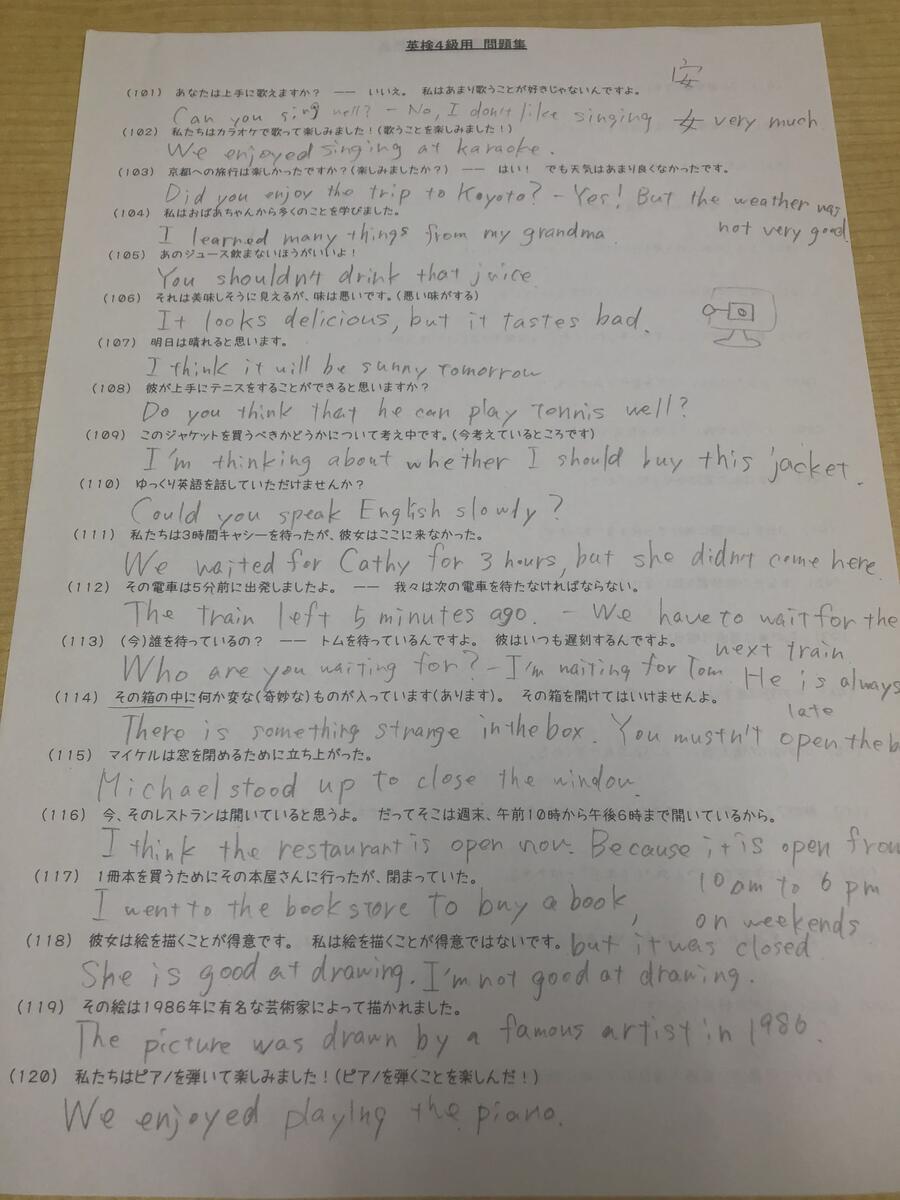 英検4級用 問題集
安
(101) あなたは上手に歌えますか? —— いいえ。 私はあまり歌うことが好きじゃないんですよ。
Can you sing well? - No, I don't like singing 女 very much
(102) 私たちはカラオケで歌って楽しみました!(歌うことを楽しみました!)
We enjoyed singing at karaoke.
(103) 京都への旅行は楽しかったですか?(楽しみましたか?) —— はい! でも天気はあまり良くなかったです。
Did you enjoy the trip to Koyoto? - Yes! But the weather was
not very good
(104) 私はおばあちゃんから多くのことを学びました。
I learned many things from my grandma
(105) あのジュース飲まないほうがいいよ!
You shouldn't drink that juice
(106) それは美味しそうに見えるが、味は悪いです。(悪い味がする)
It looks delicious, but it tastes bad.
(107) 明日は晴れると思います。
I think it will be sunny tomorrow
(108) 彼が上手にテニスをすることができると思いますか?
Do you think that he can play tennis well?
(109) このジャケットを買うべきかどうかについて考え中です。(今考えているところです)
I'm thinking about whether I should buy this jacket.
(110) ゆっくり英語を話していただけませんか?
Could you speak English slowly?
(111) 私たちは3時間キャシーを待ったが、彼女はここに来なかった。
We waited for Cathy for 3 hours, but she didn't come here.
(112) その電車は5分前に出発しましたよ。 —— 我々は次の電車を待たなければならない。
The train left 5 minutes ago. - We have to wait for the
next train
(113) (今)誰を待っているの? —— トムを待っているんですよ。 彼はいつも遅刻するんですよ。
Who are you waiting for? - I'm waiting for Tom. He is always
late
(114) その箱の中に何か変な(奇妙な)ものが入っています(あります)。 その箱を開けてはいけませんよ。
There is something strange in the box. You mustn't open the b
(115) マイケルは窓を閉めるために立ち上がった。
Michael stood up to close the window.
(116) 今、そのレストランは開いていると思うよ。 だってそこは週末、午前10時から午後6時まで開いているから。
I think the restaurant is open now. Because it is open from
10 am to 6 pm
on weekends
(117) 1冊本を買うためにその本屋さんに行ったが、閉まっていた。
I went to the book store to buy a book,
but it was closed
(118) 彼女は絵を描くことが得意です。 私は絵を描くことが得意ではないです。
She is good at drawing. I'm not good at drawing.
(119) その絵は1986年に有名な芸術家によって描かれました。
The picture was drawn by a famous artist in 1986.
(120) 私たちはピアノを弾いて楽しみました!(ピアノを弾くことを楽しんだ!)
We enjoyed playing the piano.